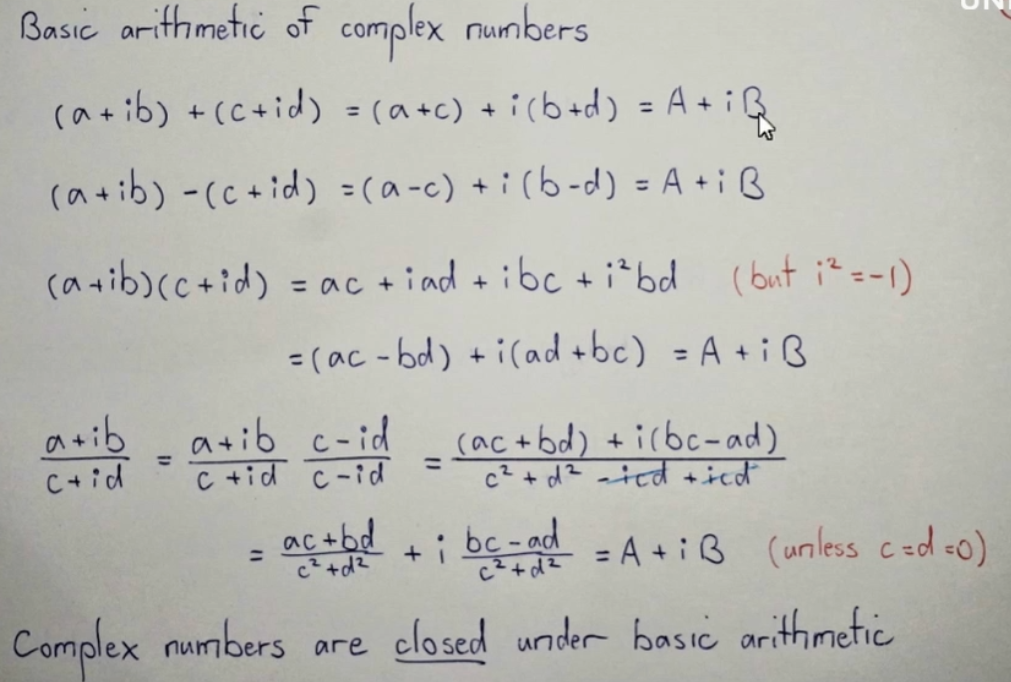 Basic arithmetic of complex numbers
(a+ib) + (c+id) = (a+c) + i(b+d) = A + iB
(a+ib) - (c+id) = (a-c) + i(b-d) = A + iB
(a+ib)(c+id) = ac + iad + ibc + i²bd (but i² = -1)
= (ac - bd) + i(ad + bc) = A + iB
a+ib/c+id = a+ib/c+id c-id/c-id = (ac+bd) + i(bc-ad)/c² + d² - icd + icd
= ac+bd/c²+d² + i bc-ad/c²+d² = A + iB (unless c=d=0)
Complex numbers are closed under basic arithmetic